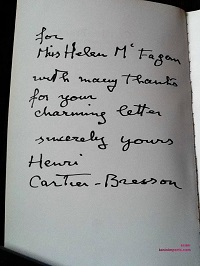 for
Miss Helen Mc Fagan
with many thanks
for your
charming letter
sincerely yours
Henri
Cartier-Bresson